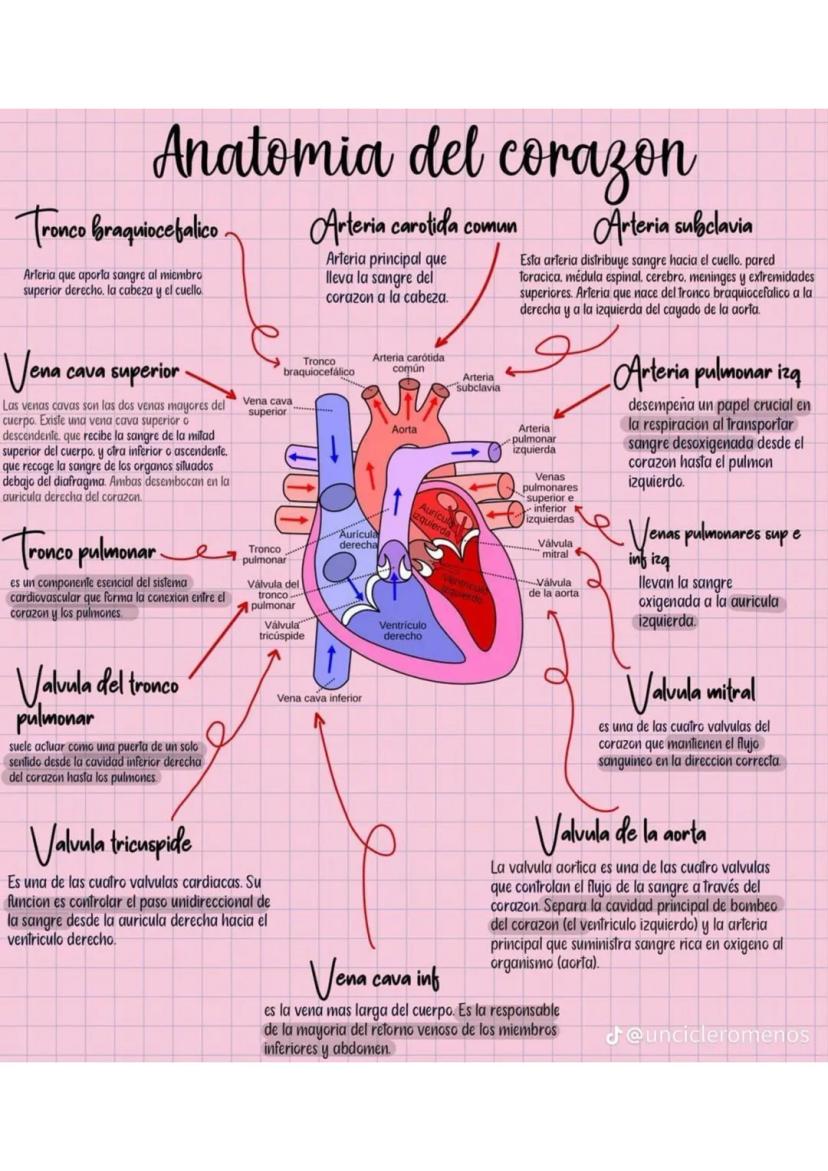 Anatomia del corazon
Tronco braquiocefalico
Arteria que aporta sangre al miembro
superior derecho, la cabeza y el cuello.
Arteria carotida comun
Arteria principal que
lleva la sangre del
corazon a la cabeza.
Arteria subclavia
Esta arteria distribuye sangre hacia el cuello, pared
toracica, médula espinal, cerebro, meninges y extremidades
superiores. Arteria que nace del tronco braquiocefalico a la
derecha y a la izquierda del cayado de la aorta.
Vena cava superior
Las venas cavas son las dos venas mayores del
cuerpo. Existe una vena cava superior o
descendente, que recibe la sangre de la mitad
superior del cuerpo, y otra inferior o ascendente,
que recoge la sangre de los organos situados
debajo del diafragma. Ambas desembocan en la
auricula derecha del corazon.
Tronco pulmonar
es un componente esencial del sistema
cardiovascular que forma la conexion entre el
corazon y los pulmones.
Valvula del tronco
pulmonar
suele actuar como una puerta de un solo
sentido desde la cavidad inferior derecha
del corazon hasta los pulmones.
Valvula tricuspide
Es una de las cuatro valvulas cardiacas. Su
funcion es controlar el paso unidireccional de
la sangre desde la auricula derecha hacia el
ventriculo derecho.
Tronco
braquiocefálico
Arteria carótida
común
Arteria
subclavia
Vena cava
superior
Aorta
Arteria
pulmonar
izquierda
Venas
pulmonares
superior e
inferior
izquierdas
Aurícula
izquierda
Aurícula
derecha
Tronco
pulmonar
Válvula
mitral
Válvula del
tronco
pulmonar
Ventrículo
izquierdo
Válvula
de la aorta
Válvula
tricúspide
Ventrículo
derecho
Vena cava inferior
Arteria pulmonar izq
desempeña un papel crucial en
la respiracion al transportar
sangre desoxigenada desde el
corazon hasta el pulmon
izquierdo.
Venas pulmonares sup e
inf izq
llevan la sangre
oxigenada a la auricula
izquierda.
Valvula mitral
es una de las cuatro valvulas del
corazon que mantienen el flujo
sanguineo en la direccion correcta.
Valvula de la aorta
La valvula aortica es una de las cuatro valvulas
que controlan el flujo de la sangre a través del
corazon. Separa la cavidad principal de bombeo
del corazon (el ventriculo izquierdo) y la arteria
principal que suministra sangre rica en oxigeno al
organismo (aorta).
Vena cava inf
es la vena mas larga del cuerpo. Es la responsable
de la mayoria del retorno venoso de los miembros
inferiores y abdomen.
@uncicleromenos